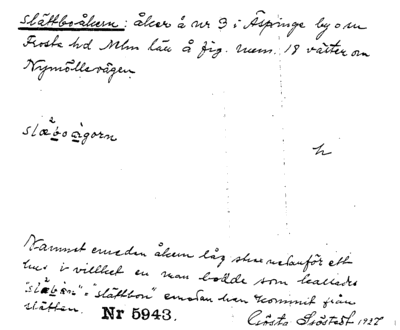 Slättboåkern: åker å nr 3 i Äspinge by o sn
Frosta hd Mlm län å fig. num. 18 väster om
Nymöllevägen
slæ²boågorn
h
Namnet emedan åkern låg strax nedanför ett
hus i vilket en man bodde som kallades
"slæ²bon" = "slättbon" emedan han kommit från
slätten. Nr 5943. Gösta Sjöstedt 1927